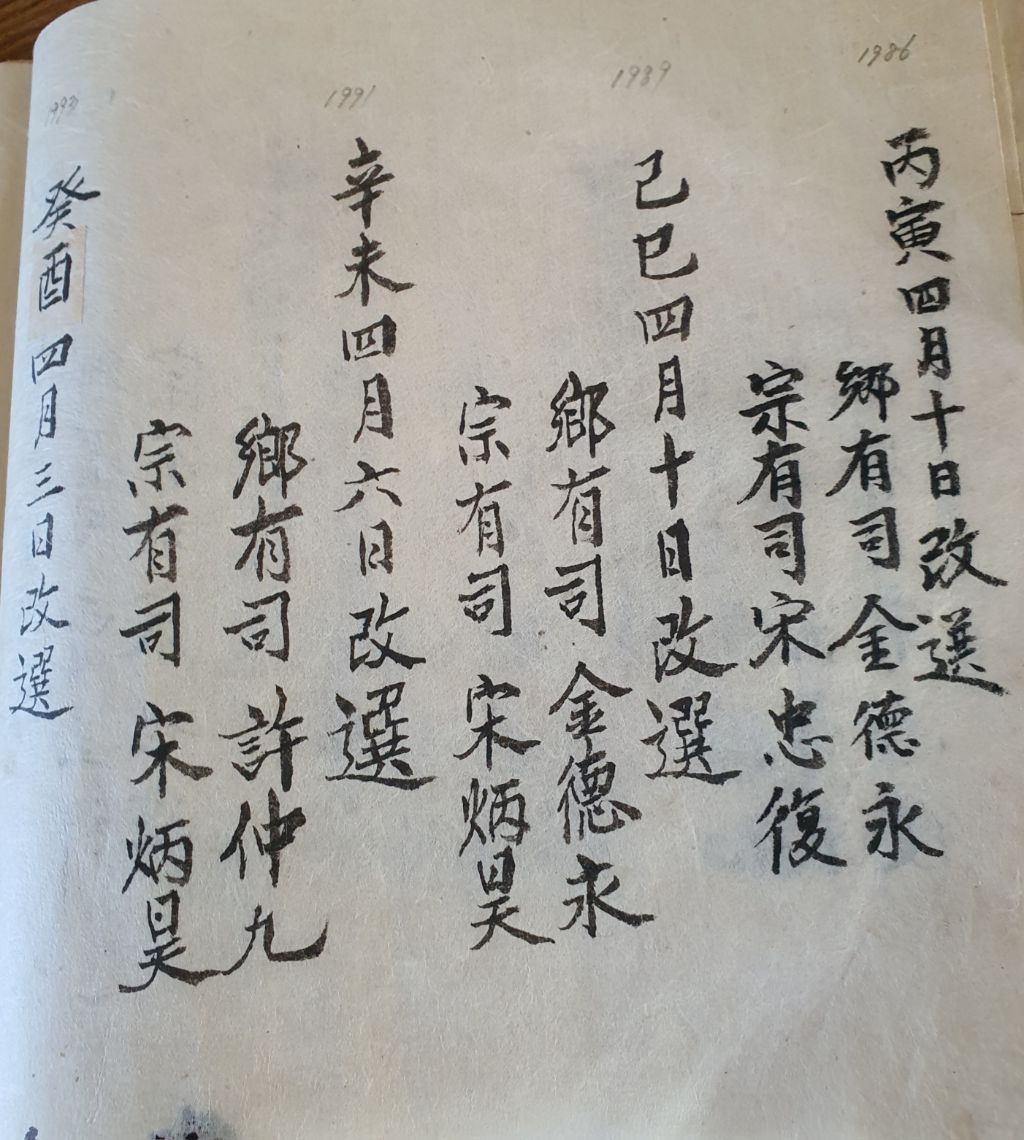 1986
丙寅四月十日改選
鄕有司 金德永
宗有司 宋忠復
1989
己巳四月十日改選
鄕有司 金德永
宗有司 宋炳昊
1991
辛未四月六日改選
鄕有司 許仲九
宗有司 宋炳昊
1993
癸酉四月三日改選